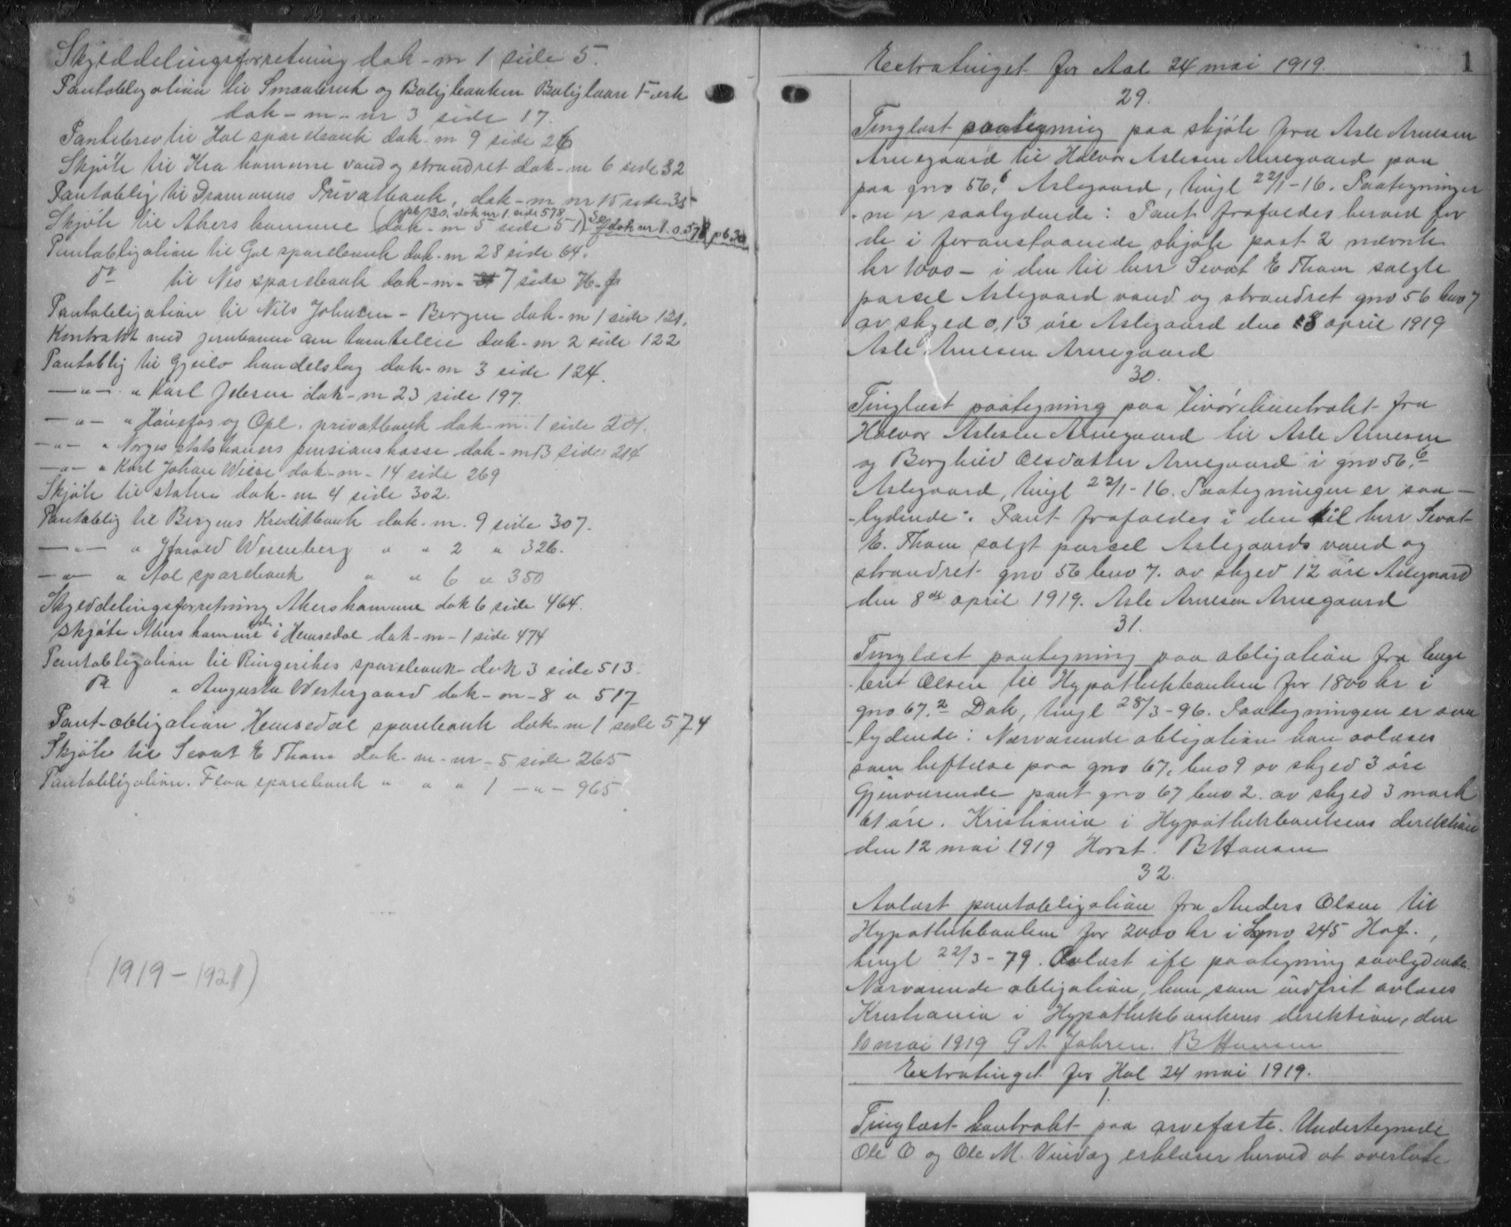 Skylddelingsforretning dok-m 1 side 5.
Pantobligation til Smaabruk og Boligbanken Boliglaane F-ærk
dok-m-nr 3 side 17.
Pantebrev til Hol sparebank dok-m 9 side 26
Skjøte til Kra kommune vand og strandret dok-m 6 side 32
Pantoblig til Drammens Privatbank, dok-m nr 15 side 35
Skjøte til Akers kommune dok-m 5 side 5
Pantobligation til Gol sparebank dok-m 28 side 64.
do til Nes sparebank dok-m- 7 side
Pantobligation til Nils Johnsen - Bergen dok-m 1 side 121.
Kontrakt med jernbanen om dok-m 2 side 122
Pantoblig til Gjeilo handelslag dok-m 3 side 124.
—"— " Karl Jebsen dok-m 23 side 197
—"— " Hønefos og Opl. privatbank dok-m. 1 side 201.
—"— " Norges statsbaners pensionskasse dok-m 13 side 214
—"— " Karl Johan Wiese dok-m-14 side 269
Skjøte til staten dok-m 4 side 302.
Pantoblig til Bergens Kreditbank dok-m. 9 side 307.
—"— " Harald Wesenberg " " 2 " 326.
—"— " Aal sparebank " " 6 " 350
Skylddelingsforretning Akers kommune dok 6 side 464.
Skjøte Akers kommune i Hemsedal dok-m-1 side 474
Pantobligation til Ringerikes sparebank dok 3 side 513.
do " Augusta Westergaard dok-m-8 " 517
Pant-obligation Hemsedal sparebank dok-m 1 side 574
Skjøte til Sevat E Tham dok-m-nr-5 side 265
Pantobligation. Flaa sparebank " " " 1 —"— 965
(1919-1921)
1
Extratinget for Aal 24 mai 1919.
29.
Tinglæst paategning paa skjøte fra Asle Arnesen
Arnegaard til Halvor Aslesen Arnegaard paa
paa gno 56,6 Aslegaard, tingl 22/1-16. Paategninge
-ne er saalydende: Pant frafaldes herved for
de i foranstaaende skjøte post 2 nævnte
kr 1000 - i den til herr Sevat E Tham solgte
parsel Aslegaard vand og strandret gno 56 bno 7
av skyld 0,13 øre Aslegaard den 8 april 1919
Asle Arnesen Arnegaard
30.
Tinglæst paategning paa livørekontrakt fra
Halvor Aslesen Arnegaard til Asle Arnesen
og Borghild Olsdatter Arnegaard i gno 56,6
Aslegaard, tingl 22/1-16. Paategningen er saa-
-lydende: Pant frafaldes i den til herr Sevat
E. Tham solgt parcel Aslegaards vand og
strandret gno 56 bno 7. av skyld 12 øre Aslegaard
den 8de april 1919. Asle Arnesen Arnegaard
31.
Tinglæst paategning paa obligation fra Enge
-bret Olsen til Hypothekbanken for 1800 kr i
gno 67,2 Dok, tingl 28/3-96. Paategningen er saa
-lydende: Nærværende obligation kan avlæses
som heftelse paa gno 67, bno 9 av skyld 3 øre
Gjenværende pant gno 67 bno 2. av skyld 3 mark
61 øre. Kristiania i Hypothekbankens direktion
den 12 mai 1919 Horst. B Hansen
32.
Avlæst pantobligation fra Anders Olsen til
Hypothekbanken for 2000 kr i Lno 245 Hof.,
tingl 22/3-79. Avlæst ifl paategning saalydende
Nærværende obligation kan som indfrit avlæses
Kristiania i Hypothekbankens direktion, den
10 mai 1919 G A Jahren. B Hansen
Extratinget for Hol 24 mai 1919.
1.
Tinglæst kontrakt paa arvefæste. Undertegnede
Ole O og Ole M. Vindeg erklærer herved at overlate